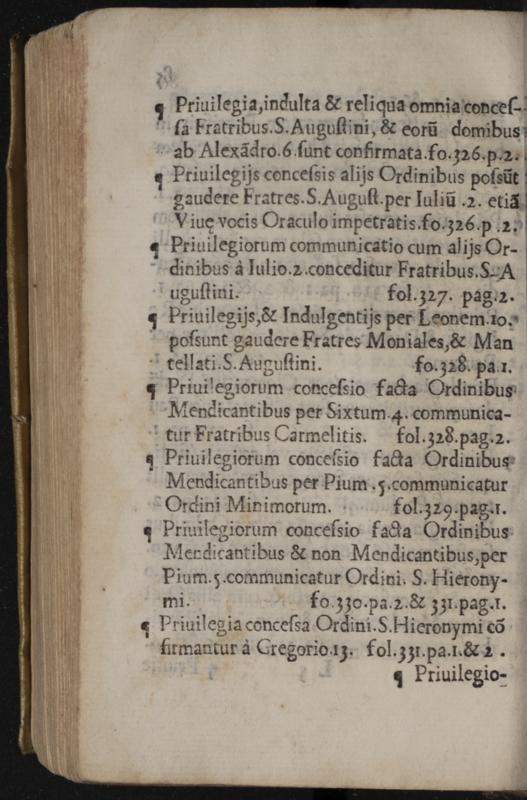 ¶ Priuilegia,indulta & reliqua omnia conceſ-
ſa Fratribus.S.Auguſtini, & eorũ domibus
ab Alexãdro.6.ſunt confirmata.fo.326.p.2.
¶ Priuilegijs conceſsis alijs Ordinibus poſsũt
gaudere Fratres.S.Auguſt.per Iuliũ .2. etiã
Viuę vocis Oraculo impetratis.fo.326.p .2.
¶ Priuilegiorum communicatio cum alijs Or-
dinibus à Iulio.2.conceditur Fratribus.S. A
uguſtini. fol.327. pag.2.
¶ Priuilegijs,& Indulgentijs per Leonem.10.
poſsunt gaudere Fratres Moniales,& Man
tellati.S.Auguſtini. fo.328. pa.1.
¶ Priuilegiorum conceſsio facta Ordinibus
Mendicantibus per Sixtum.4. communica-
tur Fratribus Carmelitis. fol.328.pag.2.
¶ Priuilegiorum conceſsio facta Ordinibus
Mendicantibus per Pium .5.communicatur
Ordini Minimorum. fol.329.pag.1.
¶ Priuilegiorum conceſsio facta Ordinibus
Mendicantibus & non Mendicantibus,per
Pium.5.communicatur Ordini. S. Hierony-
mi. fo.330.pa.2.& 331.pag.1.
¶ Priuilegia conceſsa Ordini.S.Hieronymi cõ
firmantur à Gregorio.13. fol.331.pa.1.& 2 .
¶ Priuilegio-